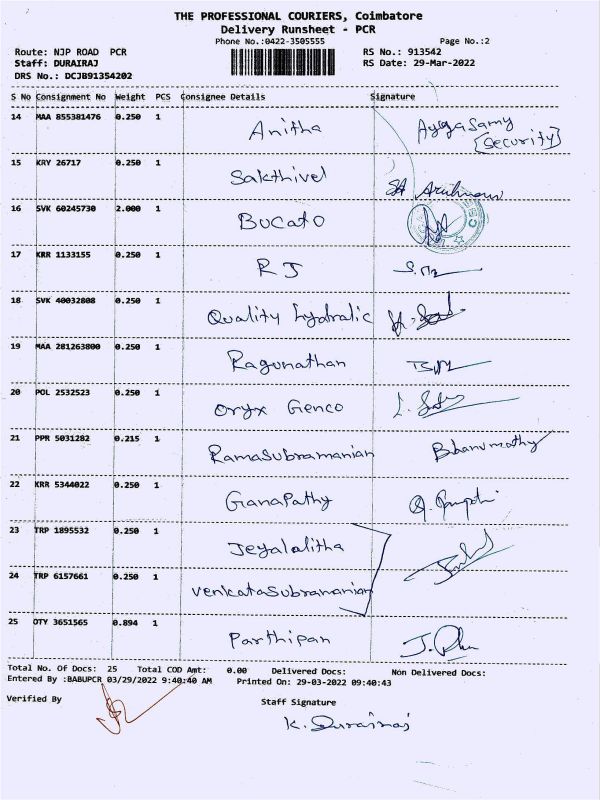 THE PROFESSIONAL COURIERS, Coimbatore
Delivery Runsheet - PCR
Phone No.:0422-3505555 Page No.:2
Route: NJP ROAD PCR RS No.: 913542
Staff: DURAIRAJ RS Date: 29-Mar-2022
DRS No.: DCJB91354202
S No Consignment No Weight PCS Consignee Details Signature
14 MAA 855381476 0.250 1 Anitha Ayyasamy
(Security)
15 KRY 26717 0.250 1 Sakthivel
16 SVK 60245730 2.000 1 Bucato
17 KRR 1133155 0.250 1 R J
18 SVK 40032808 0.250 1 Quality hydralic
19 MAA 281263800 0.250 1 Ragunathan
20 POL 2532523 0.250 1 Oryx Genco
21 PPR 5031282 0.215 1 Ramasubramanian Bhanumathy
22 KRR 5344022 0.250 1 Ganapathy
23 TRP 1895532 0.250 1 Jeyalalitha
24 TRP 6157661 0.250 1 Venkatasubramanian
25 OTY 3651565 0.894 1 Parthipan
Total No. Of Docs: 25 Total COD Amt: 0.00 Delivered Docs: Non Delivered Docs:
Entered By :BABUPCR 03/29/2022 9:40:40 AM Printed On: 29-03-2022 09:40:43
Verified By Staff Signature
K. Durairaj